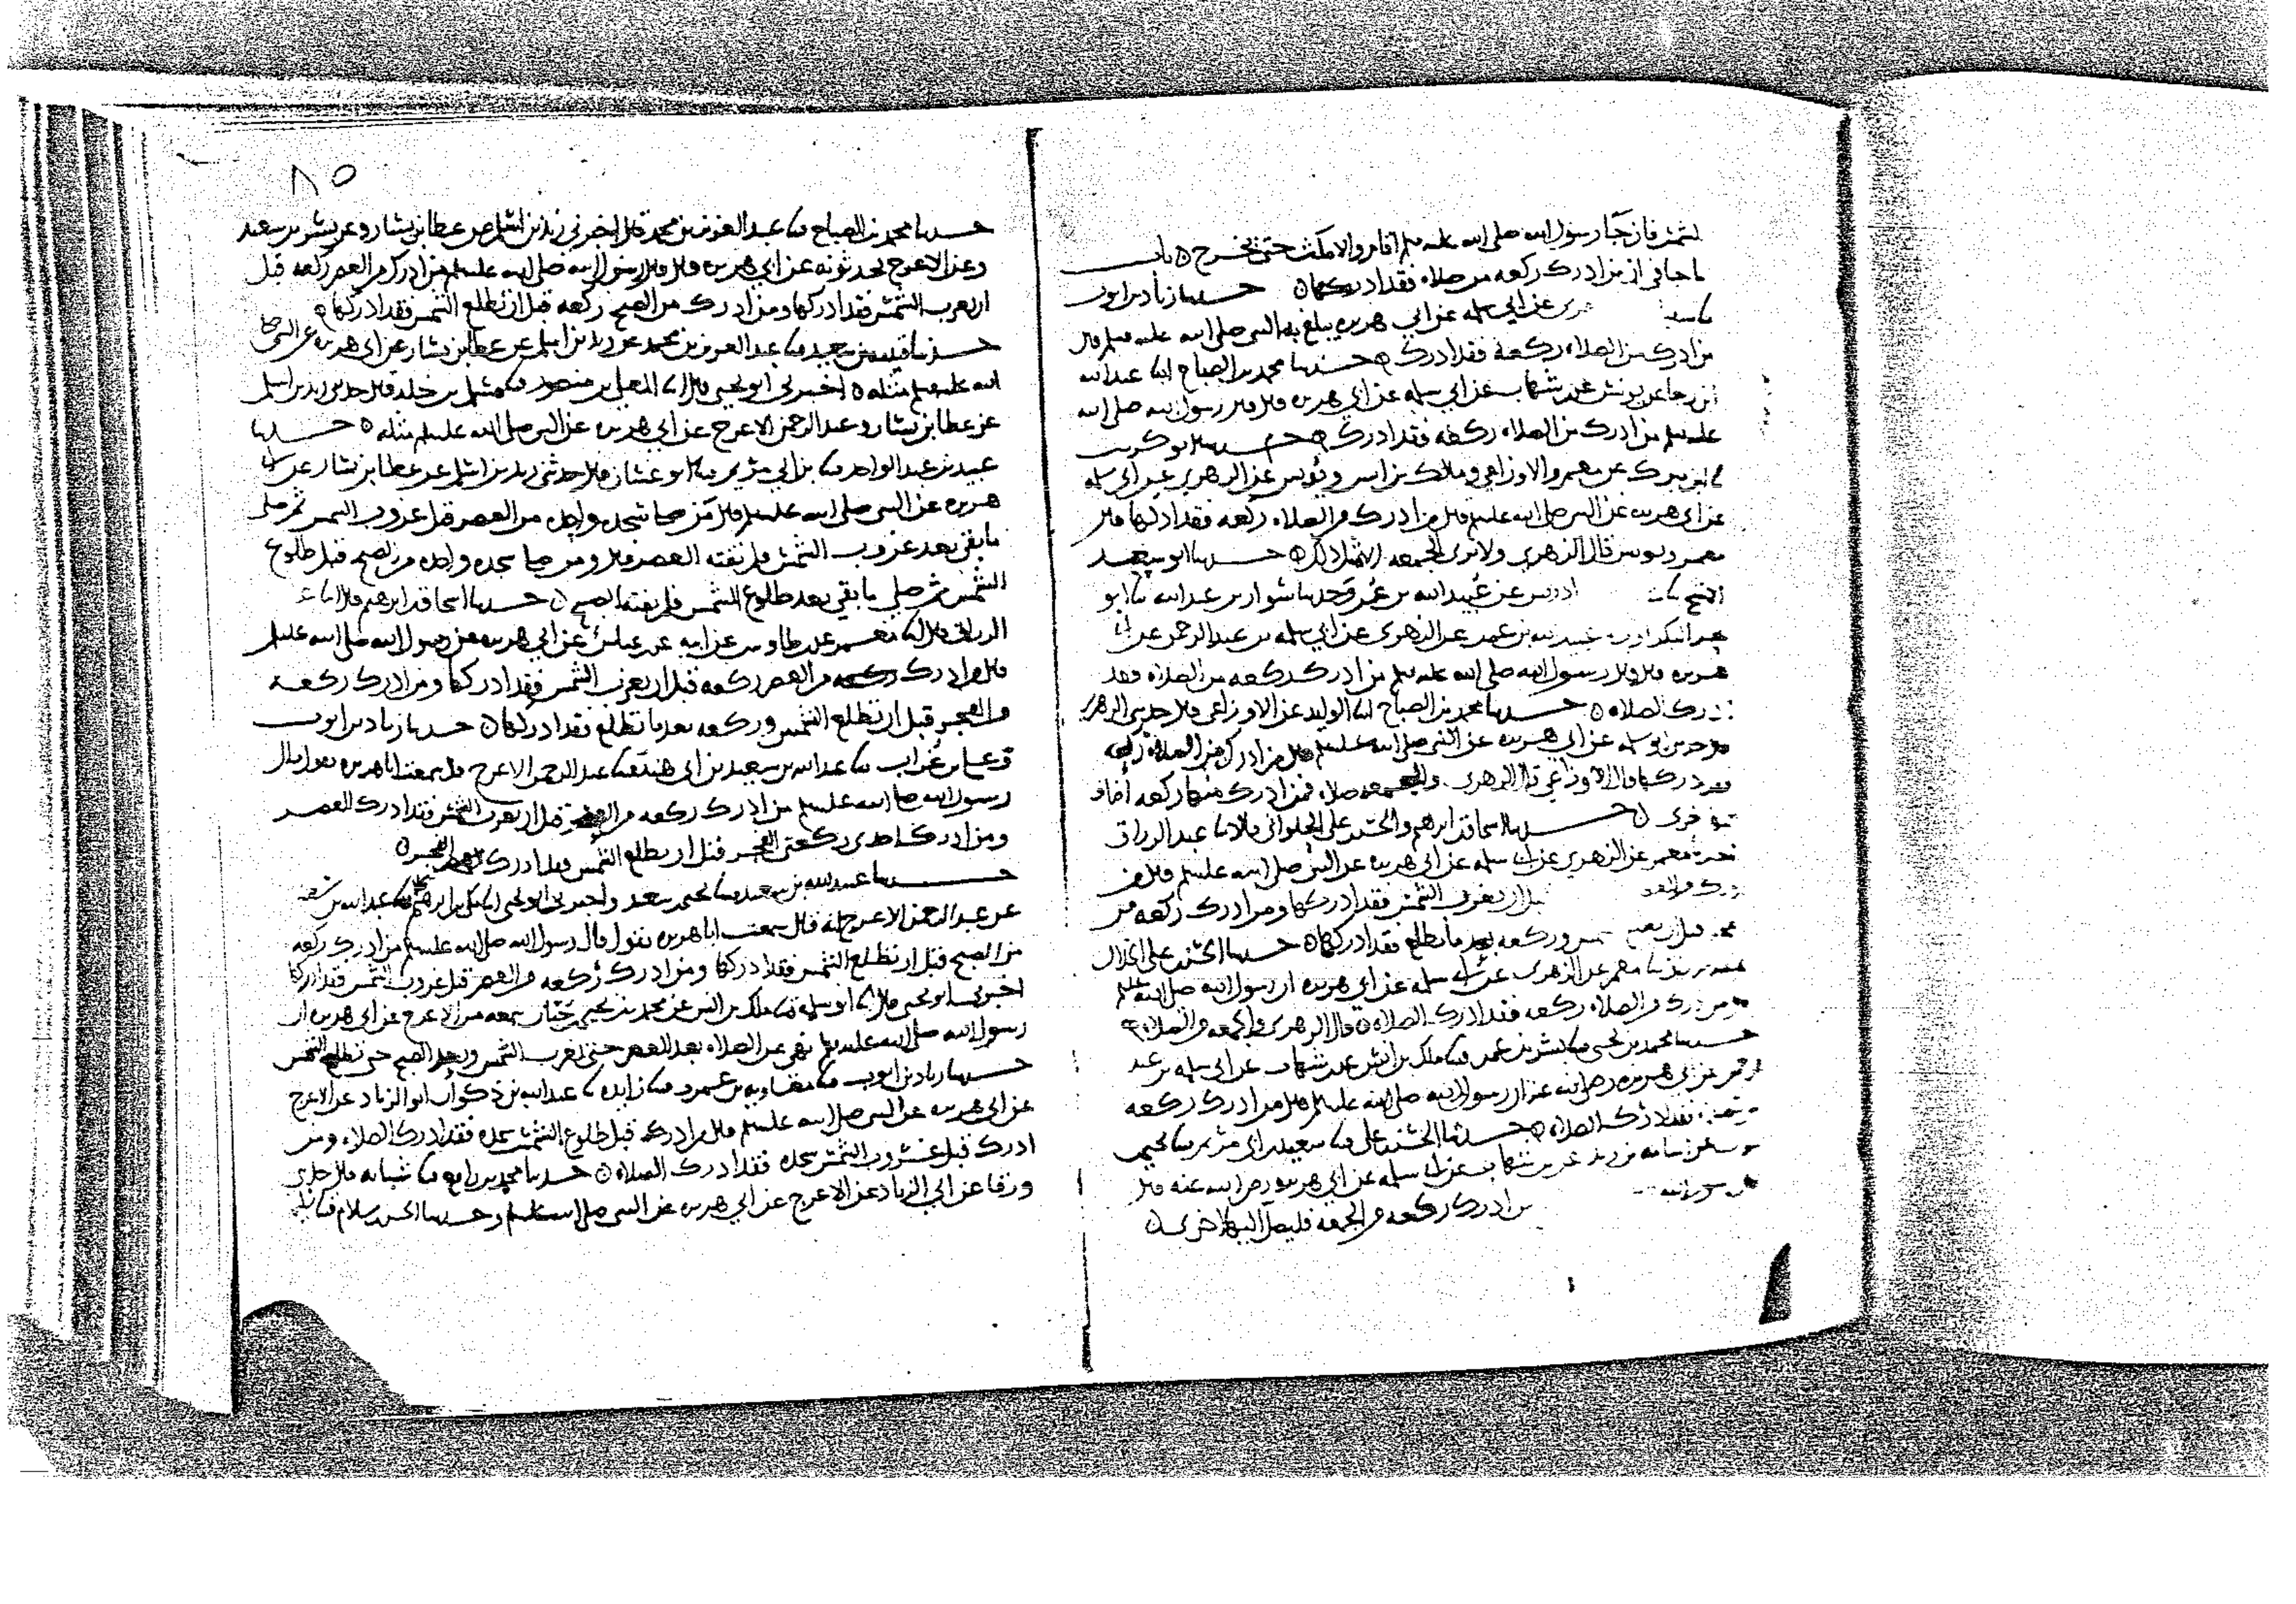 الشمس فان جا رسول الله صلى الله عليه وسلم اقام والا مكث حتى يخرج ه باب
ما جا في ان من ادرك ركعه من صلاه فقد ادركها ه حدثنا زياد بن ايوب
عن ابي سلمه عن ابي هريره يبلغ به النبي صلى الله عليه وسلم قال
من ادرك من الصلاه ركعة فقد ادرك ه حدثنا محمد بن الصباح انبا عبدالله
ابن رجا عن يونس عن بن شهاب عن ابي سلمه عن ابي هريره قال قال رسول الله صلى الله
عليه وسلم من ادرك من الصلاه ركعة فقد ادرك ه حدثنا ابو كريب
عن معمر والاوزاعي ومالك بن انس ويونس عن الزهري عن ابي سلمه
عن ابي هريره عن النبي صلى الله عليه وسلم قال من ادرك من الصلاه ركعه فقد ادركها قال
معمر ويونس قال الزهري ولا نرى الجمعه الا مثل ذلك ه حدثنا ابو سعيد
الاشج ادريس عن عبيد الله بن عمر وحدثنا سوار بن عبدالله ابو
عبيد الله بن عمر عن الزهري عن ابي سلمه بن عبد الرحمن عن ابي
هريره قال قال رسول الله صلى الله عليه وسلم من ادرك ركعه من الصلاه فقد
ادرك الصلاه ه حدثنا محمد بن الصباح انبا الوليد عن الاوزاعي قال حدثني الزهري
قال حدثني ابو سلمه عن ابي هريره عن النبي صلى الله عليه وسلم قال من ادرك من الصلاه ركعه
فقد ادركها قال الاوزاعي قال الزهري والجمعه صلاه فمن ادرك منها ركعه اضاف
اخرى ه حدثنا اسحاق بن ابرهيم والحسن بن علي الحلواني قالا انا عبد الرزاق
معمر عن الزهري عن ابي سلمه عن ابي هريره عن النبي صلى الله عليه وسلم قال من
قبل ان يغرب الشمس فقد ادركها ومن ادرك ركعه من
وركعه بعد ما تطلع فقد ادركها ه حدثنا الحسن بن علي الخلال
معمر عن الزهري عن ابي سلمه عن ابي هريره ان رسول الله صلى الله عليه وسلم
من ادرك من الصلاه ركعه فقد ادرك الصلاه ه قال الزهري والجمعه من الصلاه ه
حدثنا محمد بن يحيى بشر بن عمر مالك بن انس عن بن شهاب عن ابي سلمه بن عبد
الرحمن عن ابي هريره رضي الله عنه ان رسول الله صلى الله عليه وسلم قال من ادرك ركعه
فقد ادرك الصلاه ه حدثنا الحسن بن علي سعيد بن ابي مريم يحيى
اسامه بن زيد عن بن شهاب عن ابي سلمه عن ابي هريره رضي الله عنه قال
من ادرك ركعه من الجمعه فليصل اليها اخرى ه
٨٥
حدثنا محمد بن الصباح عبد العزيز بن محمد قال اخبرني زيد بن اسلم عن عطا بن يسار وعن بسر بن سعيد
وعن الاعرج يحدثونه عن ابي هريره قال قال رسول الله صلى الله عليه وسلم من ادرك من العصر ركعه قبل
ان يغرب الشمس فقد ادركها ومن ادرك من الصبح ركعه قبل ان تطلع الشمس فقد ادركها ه
حدثنا قتيبه بن سعيد عبد العزيز بن محمد عن زيد بن اسلم عن عطا بن يسار عن ابي هريره عن النبي صلى
الله عليه وسلم مثله ه اخبرني ابو يحيى قال انا المعلى بن منصور مسلم بن خلد قال حدثني زيد بن اسلم
عن عطا بن يسار وعبد الرحمن الاعرج عن ابي هريره عن النبي صلى الله عليه وسلم مثله ه حدثنا
عبيد بن عبد الواحد بن ابي مريم ابو غسان قال حدثني زيد بن اسلم عن عطا بن يسار عن ابي
هريره عن النبي صلى الله عليه وسلم قال من صلى سجده واحده من العصر قبل غروب الشمس ثم صلى
ما بقي بعد غروب الشمس فلم تفته العصر قال ومن صلى سجده واحده من الصبح قبل طلوع
الشمس ثم صلى ما بقي بعد طلوع الشمس فلم يفته الصبح ه حدثنا اسحاق بن ابرهيم قال انا عبد
الرزاق قال انا معمر عن بن طاوس عن ابيه عن بن عباس عن ابي هريره عن رسول الله صلى الله عليه وسلم
قال من ادرك ركعه من العصر ركعه قبل ان يغرب الشمس فقد ادركها ومن ادرك ركعة
من الفجر قبل ان تطلع الشمس وركعه بعد ما تطلع فقد ادركها ه حدثنا زياد بن ايوب
علي بن غراب عبد الله بن سعيد بن ابي هند عبد الرحمن الاعرج قال سمعت ابا هريره يقول قال
رسول الله صلى الله عليه وسلم من ادرك ركعه من العصر قبل ان يغرب الشمس فقد ادرك العصر
ومن ادرك احدى ركعتي الفجر قبل ان يطلع الشمس فقد ادرك الفجر ه
حدثنا عبيد الله بن سعيد يحيى بن سعيد واخبرني ابو يحيى مكي بن ابرهيم عبد الله بن سعيد
عن عبد الرحمن الاعرج انه قال سمعت ابا هريره يقول قال رسول الله صلى الله عليه وسلم من ادرك ركعه
من الصبح قبل ان تطلع الشمس فقد ادركها ومن ادرك ركعه من العصر قبل غروب الشمس فقد ادركها
اخبرني ابو يحيى قال انا ابو سلمه مالك بن انس عن محمد بن يحيى بن حبان سمعه من الاعرج عن ابي هريره ان
رسول الله صلى الله عليه وسلم نهى عن الصلاه بعد العصر حتى تغرب الشمس وبعد الصبح حتى تطلع الشمس
حدثنا زياد بن ايوب معاويه بن عمرو زايده عبد الله بن ذكوان ابو الزناد عن الاعرج
عن ابي هريره عن النبي صلى الله عليه وسلم قال من ادرك قبل طلوع الشمس سجده فقد ادرك الصلاه ومن
ادرك قبل غروب الشمس سجده فقد ادرك الصلاه ه حدثنا محمد بن رافع شبابه قال حدثني
ورقا عن ابي الزناد عن الاعرج عن ابي هريره عن النبي صلى الله عليه وسلم وحدثنا الحسن بن سلام